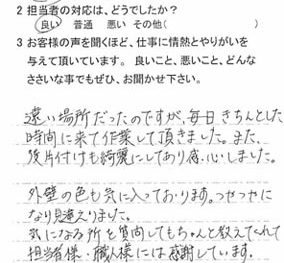 2 担当者の対応は、どうでしたか？
良い 普通 悪い その他( )
3 お客様の声を聞くほど、仕事に情熱とやりがいを
与えて頂いています。 良いこと、悪いこと、どんな
ささいな事でもぜひ、お聞かせ下さい。
遠い場所だったのですが、毎日きちんとした
時間に来て作業して頂きました。また、
後片付けも綺麗にしてあり感心しました。
外壁の色も気に入っております。つやつやに
なり見違えりました。
気になる所を質問してもちゃんと教えてくれて
担当者様・職人様には感謝しています。